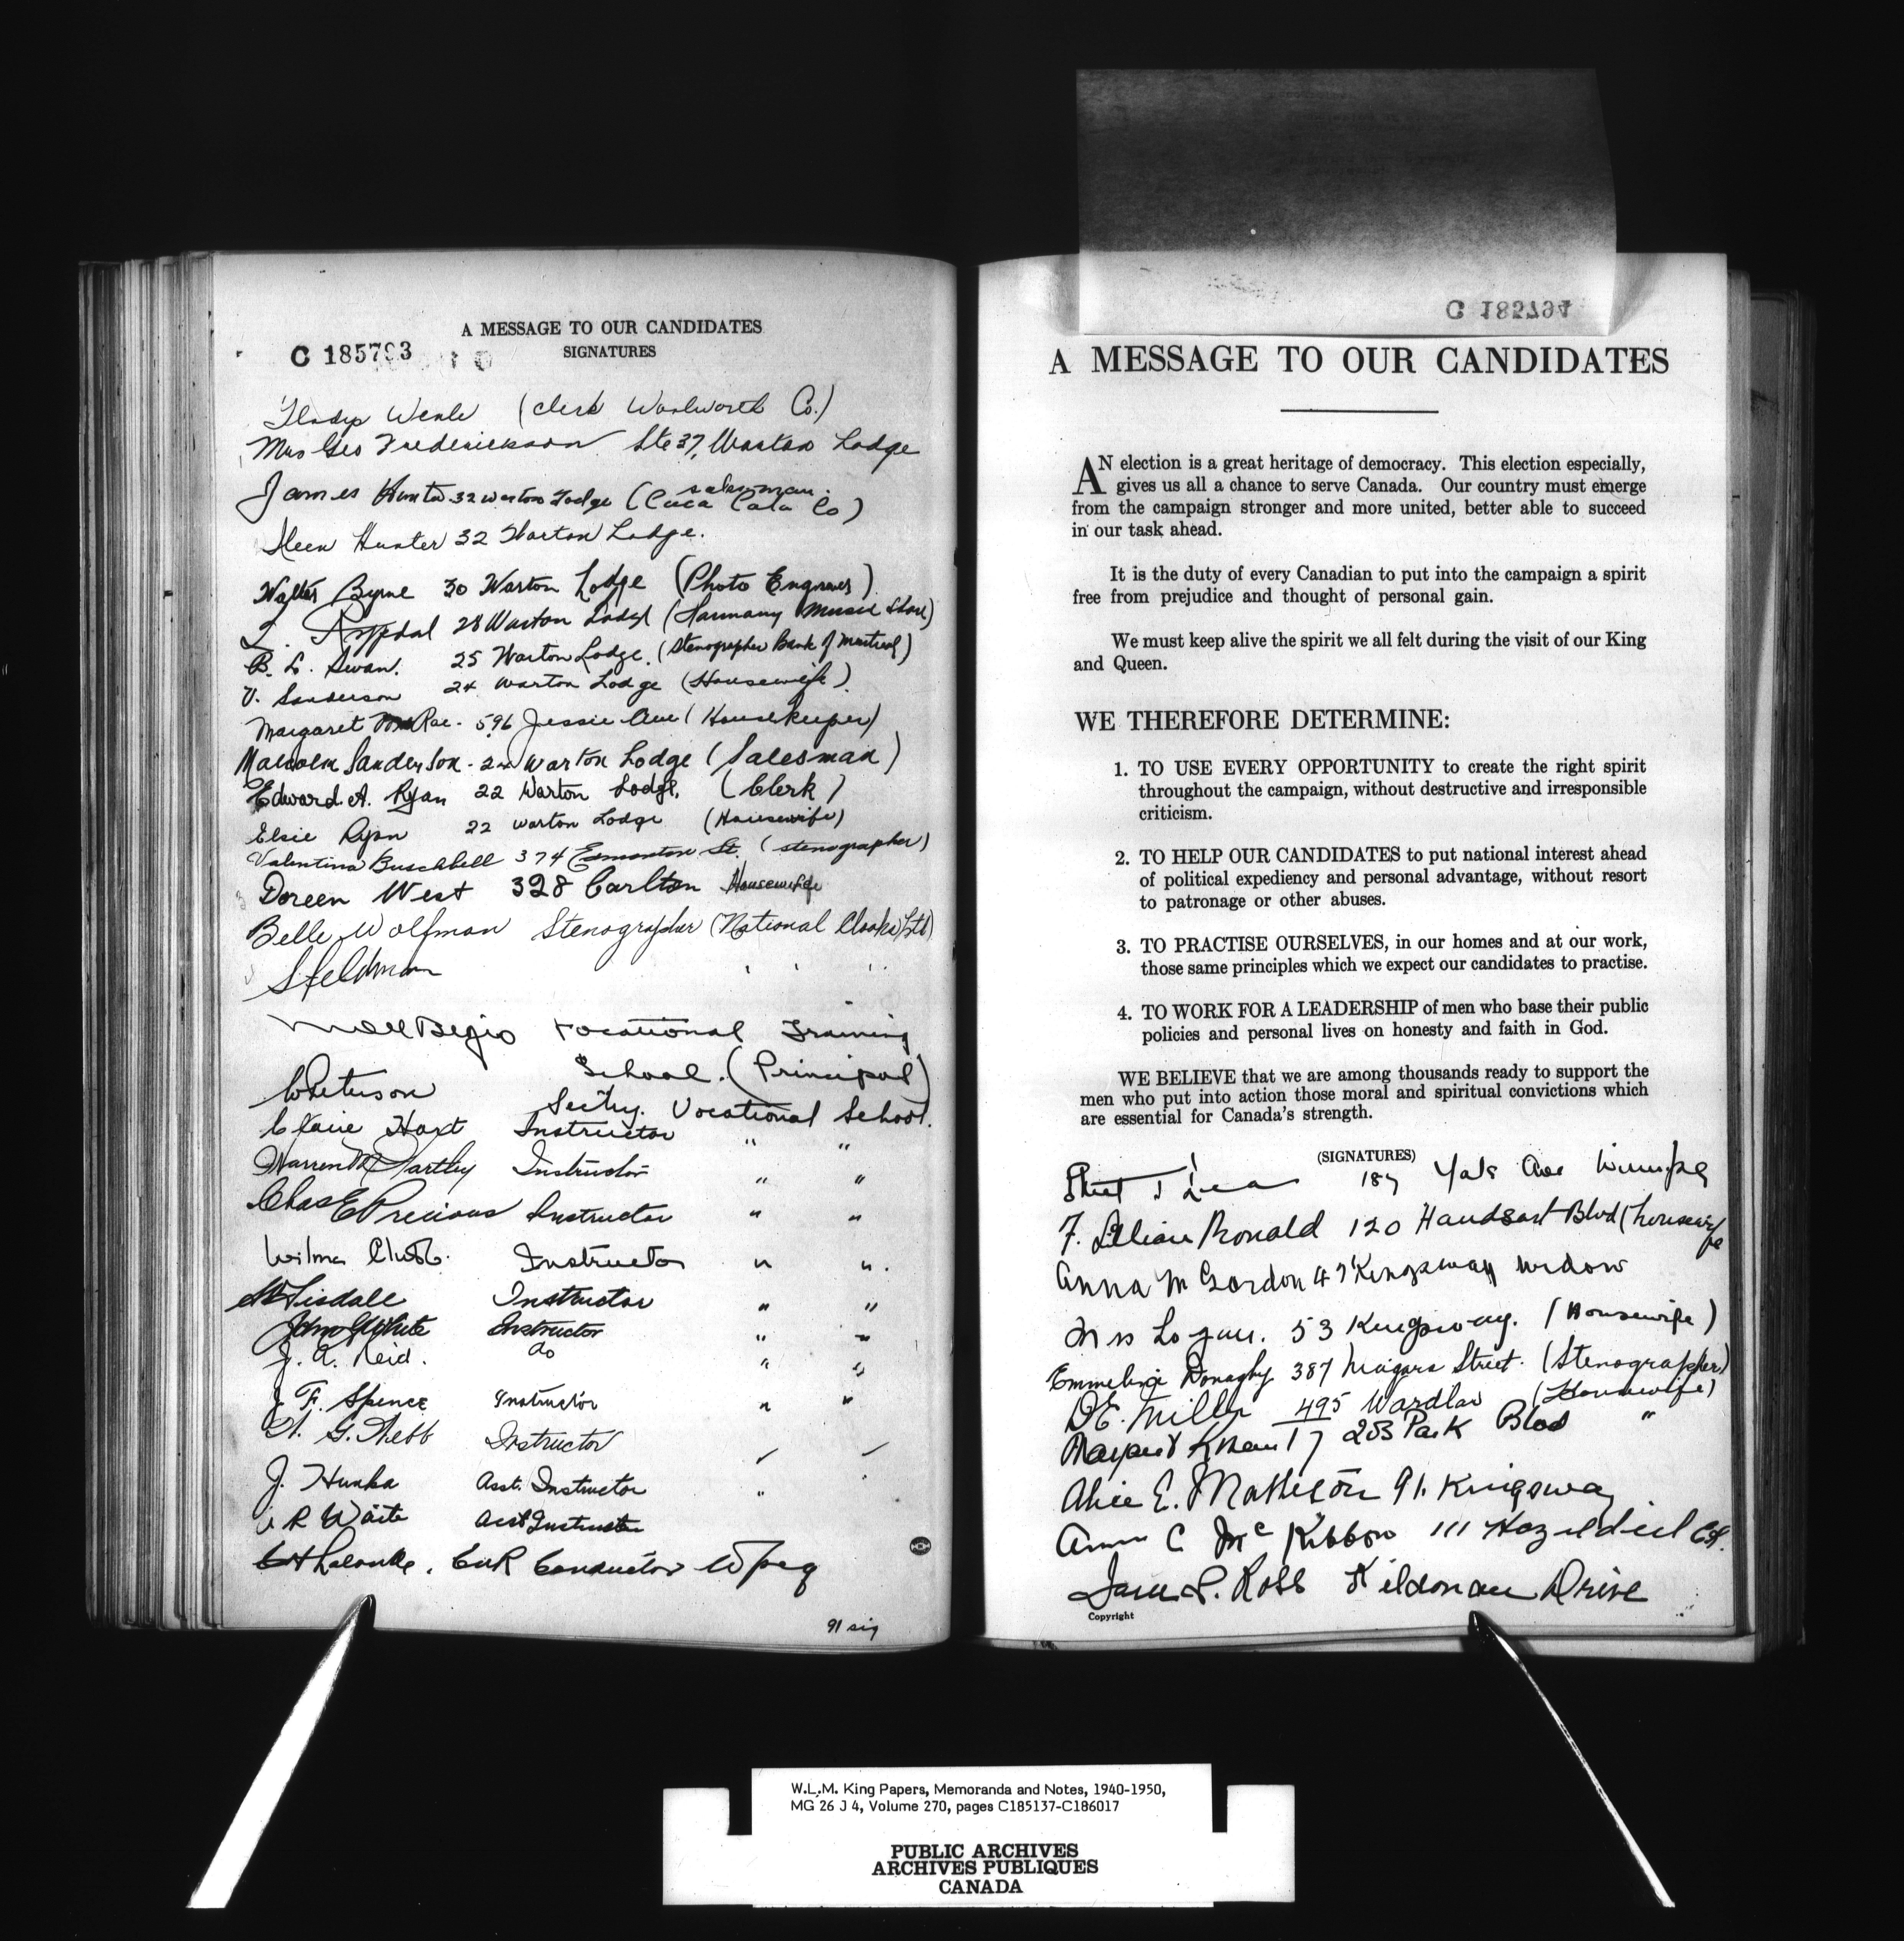 A MESSAGE TO OUR CANDIDATES
C 185793
SIGNATURES
Gladys Weale (Clerk Woolworth Co.)
Mrs Geo Frederickson Ste 37, Warton Lodge
salesman.
James Hunter 32 Warton Lodge (Coca Cola Co)
Ileen Hunter 32 Warton Lodge.
Walter Byrne 30 Warton Lodge (Photo Engraver)
L. 28 Warton Lodge (Harmony Music Store)
B. L. Swan. 25 Warton Lodge. (Stenographer Bank of Montreal)
V. Sanderson 24 Warton Lodge (Housewife).
Margaret McRae - 596 Jessie Ave (Housekeeper)
Malcolm Sanderson - 24 Warton Lodge (Salesman)
Edward A. Ryan 22 Warton Lodge. (Clerk)
Elsie Ryan 22 Warton Lodge (Housewife)
Valentina Buschbell 374 Edmonton St. (stenographer)
Doreen West 328 Carlton Housewife
Belle Wolfman Stenographer (National Cloaks Ltd)
S Feldman " " "
Vocational Training
School. (Principal)
Peterson Sectry. Vocational School.
Claire Hart Instructor " "
Warren M Hartley Instructor " "
Chas E Precious Instructor " "
Wilma Chubb. Instructor " ".
Tisdale Instructor " "
John G White Instructor " "
J. A. Reid. do " "
J F. Spence Instructor " "
G. Webb Instructor " "
J. Hunka Asst. Instructor "
R Waite Asst Instructor
Lalonde. CNR Conductor Wpeg
91 sig
C 185794
A MESSAGE TO OUR CANDIDATES
AN election is a great heritage of democracy. This election especially,
gives us all a chance to serve Canada. Our country must emerge
from the campaign stronger and more united, better able to succeed
in our task ahead.
It is the duty of every Canadian to put into the campaign a spirit
free from prejudice and thought of personal gain.
We must keep alive the spirit we all felt during the visit of our King
and Queen.
WE THEREFORE DETERMINE:
1. TO USE EVERY OPPORTUNITY to create the right spirit
throughout the campaign, without destructive and irresponsible
criticism.
2. TO HELP OUR CANDIDATES to put national interest ahead
of political expediency and personal advantage, without resort
to patronage or other abuses.
3. TO PRACTISE OURSELVES, in our homes and at our work,
those same principles which we expect our candidates to practise.
4. TO WORK FOR A LEADERSHIP of men who base their public
policies and personal lives on honesty and faith in God.
WE BELIEVE that we are among thousands ready to support the
men who put into action those moral and spiritual convictions which
are essential for Canada's strength.
(SIGNATURES)
187 Yale Ave Winnipeg
F. Lillian Ronald 120 Handsart Blvd (housewife
Anna M Gordon 47 Kingsway widow
Mrs Logan. 53 Kingsway. (Housewife)
Emmeline Donaghy 387 Niagara Street. (Stenographer)
D E. Miller 495 Wardlaw (Housewife)
Margaret 203 Park Blvd "
Alice E. Matheson 91. Kingsway
Anna C McKibbon 111 Hazeldell
Jane S. Ross Kildonan Drive
Copyright
W.L.M. King Papers, Memoranda and Notes, 1940-1950,
MG 26 J 4, Volume 270, pages C185137-C186017
PUBLIC ARCHIVES
ARCHIVES PUBLIQUES
CANADA